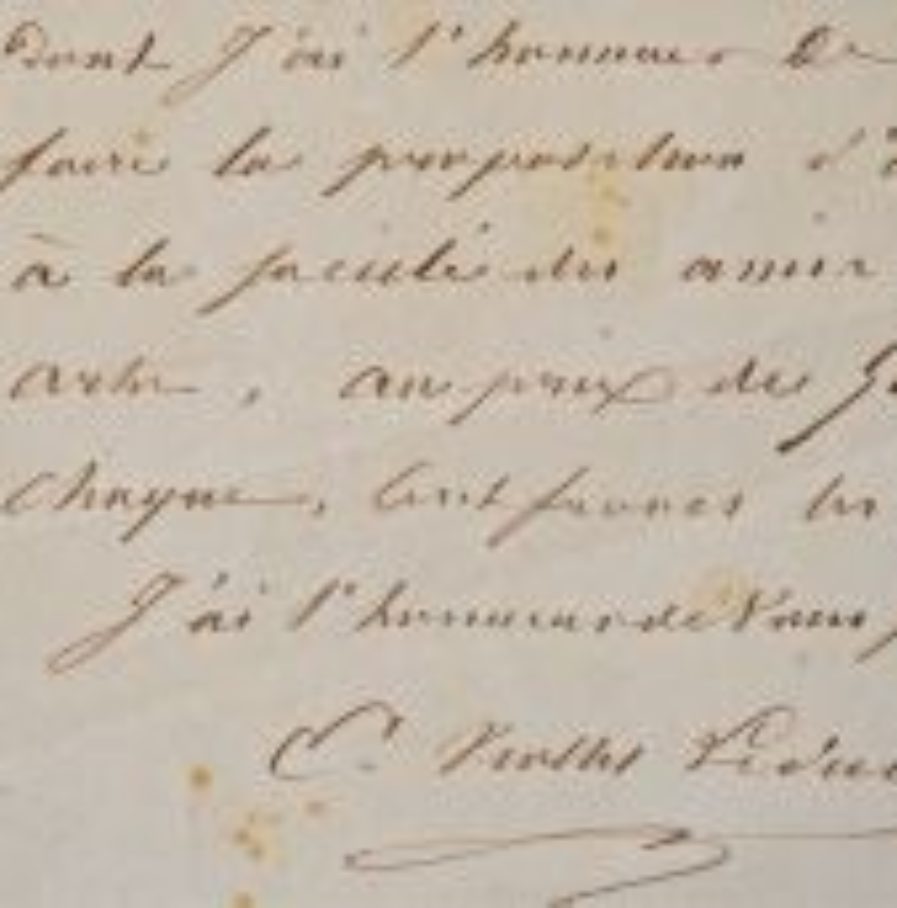 dont J'ai l'honneur de
faire la proposition
à la société des amis
arts, au prix de
chaque, Cent francs les
J'ai l'honneur de Vous
C. Viollet Leduc